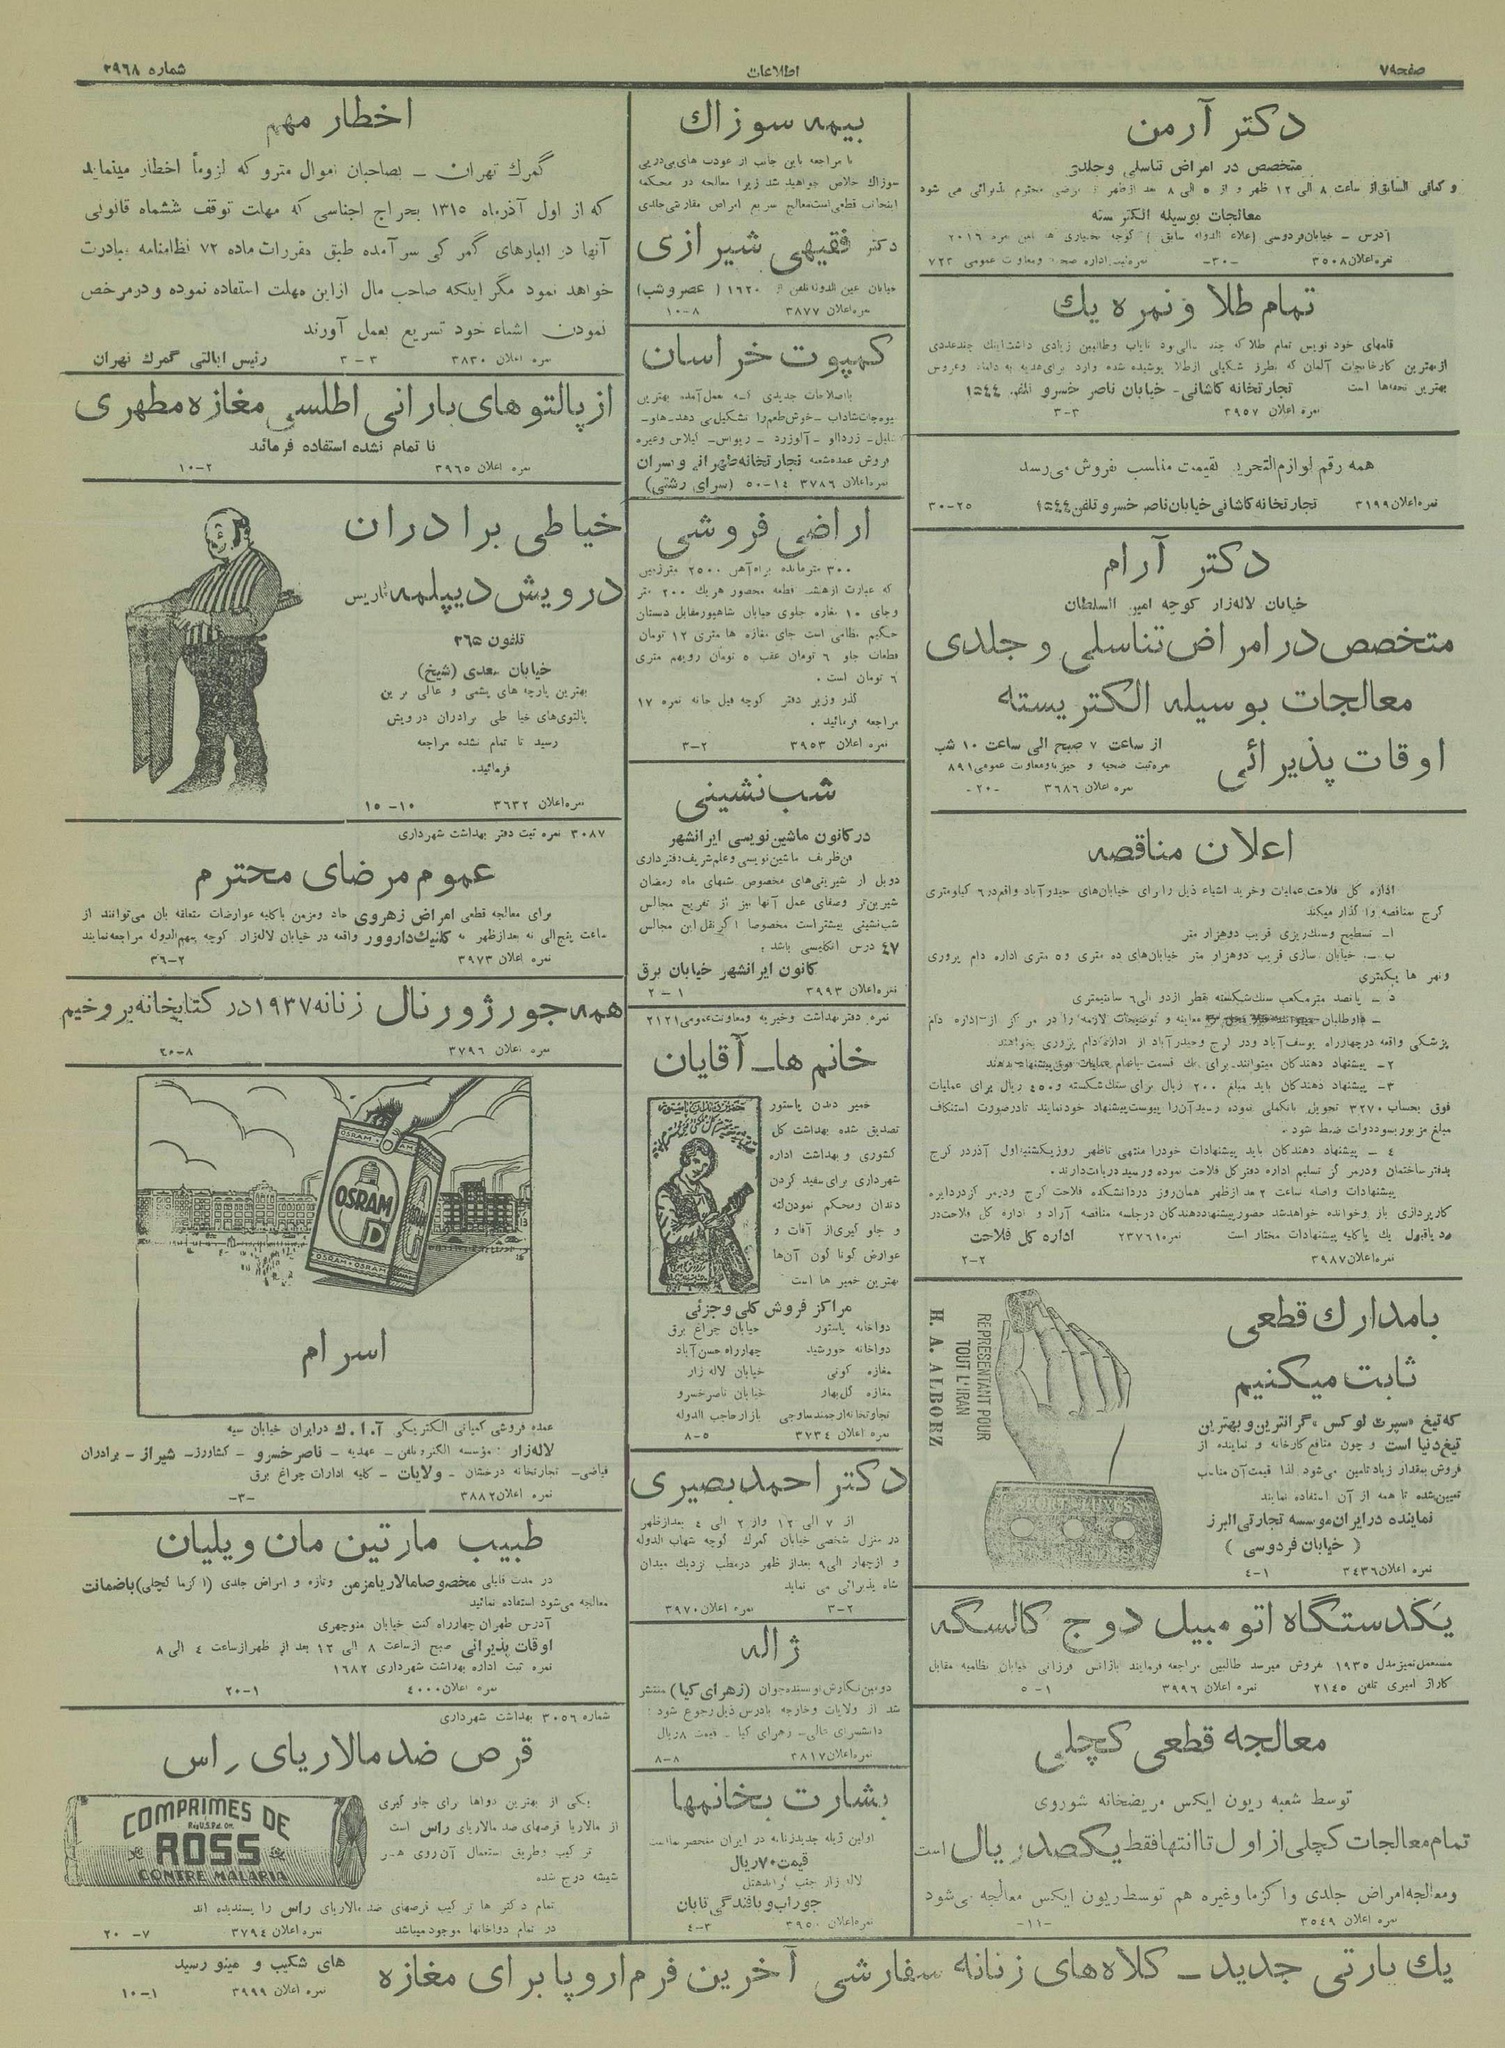 صفحه ۷۹
اطلاعات
شماره ۳۹۶۸
دکتر آرمن
متخصص در امراض تناسلی و جلدی
و کمافی السابق از ساعت ۸ الی ۱۲ ظهر و از ۵ الی ۸ بعد از ظهر از مرضی محترم پذیرائی می شود
معالجات بوسیله الکتر سته
آدرس – خیابان فردوسی (علاء الدوله سابق) کوچه بختیاری
نمره اعلان ۳۵۰۸ -۳۰- نمره ثبت اداره صحیه و معاونت عمومی ۷۲۳
تمام طلا و نمره یك
قلمهای خود نویس تمام طلا که چند سالی بود نایاب و طالبین زیادی داشت اینك چند عددی
از بهترین کارخانجات آلمان که بطرز شکیلی از طلا پوشیده شده وارد برای هدیه به داماد و عروس
بهترین تحفه‌ها است تجارتخانه کاشانی – خیابان ناصر خسرو تلفن ۱۵۴۴
نمره اعلان ۳۹۵۷ ۳-۳
همه رقم لوازم التحریر بقیمت مناسب بفروش می‌رسد
نمره اعلان ۳۱۹۹ تجارتخانه کاشانی خیابان ناصر خسرو تلفن ۱۵۴۴ ۲۵-۳۰
دکتر آرام
خیابان لاله‌زار کوچه امین السلطان
متخصص در امراض تناسلی و جلدی
معالجات بوسیله الکتریسته
اوقات پذیرائی
از ساعت ۷ صبح الی ساعت ۱۰ شب
نمره ثبت صحیه و خیریه و معاونت عمومی ۸۹۱
نمره اعلان ۳۶۸۶ -۲۰-
اعلان مناقصه
اداره کل فلاحت عملیات و خرید اشیاء ذیل را برای خیابان‌های حیدرآباد واقع در ۶ کیلومتری
کرج بمناقصه واگذار میکند
ا– تسطیح و سنك ریزی قریب دوهزار متر
ب – خیابان سازی قریب دوهزار متر خیابان‌های ده متری و ۵ متری اداره دام پروری
و نهر ها یکمتری
د – پانصد متر مکعب سنك شکسته بقطر از دو الی ۶ سانتیمتری
– داوطلبان میتوانند معاینه و توضیحات لازمه را در مرکز از اداره دام
پزشکی واقعه در چهارراه یوسف آباد و در کرج و حیدرآباد از اداره دام پروری بخواهند
۲– پیشنهاد دهندگان میتوانند برای یك قسمت یا تمام عملیات فوق پیشنهاد بدهند
۳– پیشنهاد دهندگان باید مبلغ ۲۰۰ ریال برای سنك شکسته و ۴۵۰ ریال برای عملیات
فوق بحساب ۳۲۷۰ تحویل بانکملی نموده رسید آن را پیوست پیشنهاد خود نمایند تا در صورت استنکاف
مبلغ مزبور بسود دولت ضبط شود .
۴ – پیشنهاد دهندگان باید پیشنهادات خود را منتهی تا ظهر روز یکشنبه اول آذر در کرج
بدفتر ساختمان و در مرکز تسلیم اداره دفتر کل فلاحت نموده و رسید دریافت دارند .
پیشنهادات واصله ساعت ۲ بعد از ظهر همان روز در دانشکده فلاحت کرج و در مرکز در دایره
کارپردازی باز و خوانده خواهد شد حضور پیشنهاد دهندگان در جلسه مناقصه آزاد و اداره کل فلاحت در
رد یا قبول یك یا کلیه پیشنهادات مختار است نمره ۲۳۷۶۱ اداره کل فلاحت
نمره اعلان ۳۹۸۷ ۲-۲
بامدارك قطعی
ثابت میکنیم
که تیغ «سپرت لوکس» گرانترین و بهترین
تیغ دنیا است و چون منافع کارخانه و نماینده از
فروش بمقدار زیاد تامین می‌شود لذا قیمت آن مناسب
تعیین شده تا همه از آن استفاده نمایند
نماینده در ایران موسسه تجارتی البرز
( خیابان فردوسی )
نمره اعلان ۳۴۳۶ ۱-۴
REPRESENTANT POUR
TOUT L'IRAN
H. A. ALBORZ
SPORT-LUXES
یکدستگاه اتومبیل دوج کالسگه
مستعمل تمیز مدل ۱۹۳۵ بفروش میرسد طالبین مراجعه فرمایند بآژانس فرزانی خیابان نظامیه مقابل
کاراژ امیری تلفن ۲۱۴۵ نمره اعلان ۳۹۹۶ ۱-۵
معالجه قطعی کچلی
توسط شعبه ریون ایکس مریضخانه شوروی
تمام معالجات کچلی از اول تا انتها فقط یکصد ریال است
و معالجه امراض جلدی و اکزما و غیره هم توسط ریون ایکس معالجه می‌شود
نمره اعلان ۳۵۴۹ -۱۱-
بیمه سوزاك
با مراجعه باین جانب از عودت های پی در پی
سوزاك خلاص خواهید شد زیرا معالجه در محکمه
اینجانب قطعی است معالج سریع امراض مقاربتی جلدی
دکتر فقیهی شیرازی
خیابان عین الدوله تلفن ۱۶۲۰ (عصر و شب)
نمره اعلان ۳۸۷۷ ۸-۱۰
کمپوت خراسان
بااصلاحات جدیدی که بعمل آمده بهترین
میوه‌جات شاداب – خوش طعم را تشکیل می دهد – هلو –
– زردالو – آلوزرد – ریواس – گیلاس و غیره
فروش عمده شعبه تجارتخانه طهرانی و پسران
نمره اعلان ۳۷۸۶ ۱۴-۵۰ (سرای رشتی)
اراضی فروشی
۳۰۰ متر مانده براه آهن ۲۵۰۰ متر زمین
که عبارت از هشت قطعه محصور هر یك ۲۰۰ متر
و جای ۱۰ مغازه جلوی خیابان شاهپور مقابل دبستان
حکیم نظامی است جای مغازه ها متری ۱۲ تومان
قطعات جلو ۶ تومان عقب ۵ تومان رویهم متری
۶ تومان است .
گذر وزیر دفتر کوچه فیل خانه نمره ۱۷
مراجعه فرمائید .
نمره اعلان ۳۹۵۳ ۲-۳
شب نشینی
در کانون ماشین نویسی ایرانشهر
فن ظریف ماشین نویسی و علم شریف دفتر داری
دوبل از شیرینی‌های مخصوص شبهای ماه رمضان
شیرین‌تر و صفای عمل آنها نیز از تفریح مجالس
شب نشینی بیشتر است مخصوصا اگر نقل این مجالس
۴۷ درس انگلیسی باشد .
کانون ایرانشهر خیابان برق
نمره اعلان ۳۹۹۳ ۱-۲
نمره دفتر بهداشت و خیریه و معاونت عمومی ۲۱۲۱
خانم ها – آقایان
خمیر دندان پاستور
تصدیق شده بهداشت کل
کشوری و بهداشت اداره
شهرداری برای سفید کردن
دندان و محکم نمودن لثه
و جلو گیری از آفات و
عوارض گونا گون آن‌ها
بهترین خمیر ها است
مراکز فروش کلی و جزئی
دواخانه پاستور خیابان چراغ برق
دواخانه خورشید چهارراه حسن آباد
مغازه کونی خیابان لاله زار
مغازه گل بهار خیابان ناصر خسرو
تجارتخانه ارجمند ساوجی بازار حاجب الدوله
نمره اعلان ۳۷۳۴ ۵-۸
دکتر احمد بصیری
از ۷ الی ۱۲ و از ۲ الی ۴ بعد از ظهر
در منزل شخصی خیابان گمرك کوچه شهاب الدوله
و از چهار الی ۹ بعد از ظهر در مطب نزدیك میدان
شاه پذیرائی می نماید
نمره اعلان ۳۹۷۰ ۲-۳
ژاله
دومین نگارش نویسنده جوان (زهرای کیا) منتشر
شد از ولایات و خارجه بآدرس ذیل رجوع شود :
دانشسرای عالی – زهرای کیا – قیمت ۸ ریال
نمره اعلان ۳۸۱۷ ۸-۸
بشارت بخانمها
اولین ژیله جدید زنانه در ایران منحصر بماست
قیمت ۷۰ ریال
لاله زار جنب گراندهتل
جوراب و بافندگی تابان
نمره اعلان ۳۹۵۰ ۳-۴
اخطار مهم
گمرك تهران – بصاحبان اموال مترو که لزوماً اخطار مینماید
که از اول آذرماه ۱۳۱۵ بحراج اجناسی که مهلت توقف ششماه قانونی
آنها در انبارهای گمرکی سر آمده طبق مقررات ماده ۷۲ نظامنامه مبادرت
خواهد نمود مگر اینکه صاحب مال از این مهلت استفاده نموده و در مرخص
نمودن اشیاء خود تسریع بعمل آورند
نمره اعلان ۳۸۳۰ ۳-۳ رئیس ایالتی گمرك تهران
از پالتوهای بارانی اطلسی مغازه مطهری
تا تمام نشده استفاده فرمائید
نمره اعلان ۳۹۶۵ ۲-۱۰
خیاطی برادران
درویش دیپلمه پاریس
تلفون ۳۶۵
خیابان سعدی (شیخ)
بهترین پارچه های پشمی و عالی ترین
پالتوی‌های خیاطی برادران درویش
رسید تا تمام نشده مراجعه
فرمائید.
نمره اعلان ۳۶۳۲ ۱۰-۱۵
۳۰۸۷ نمره ثبت دفتر بهداشت شهرداری
عموم مرضای محترم
برای معالجه قطعی امراض زهروی حاد و مزمن با کلیه عوارضات متعلقه بان می‌توانند از
ساعت پنج الی نه بعد از ظهر به کلنیك داروور واقعه در خیابان لاله‌زار کوچه مهم الدوله مراجعه نمایند
نمره اعلان ۳۹۷۳ ۲-۳۶
همه جور ژورنال زنانه ۱۹۳۷ در کتابخانه بروخیم
نمره اعلان ۳۷۹۶ ۸-۲۰
OSRAM
OSRAM
D
OSRAM
اسرام
عمده فروشی کمپانی الکتریکی آ.ا.ك درایران خیابان سپه
لاله زار : مؤسسه الکتروتلفن – عهدیه – ناصر خسرو – کشاورز – شیراز – برادران
فیاضی – تجارتخانه درخشان – ولایات – کلیه ادارات چراغ برق
نمره اعلان ۳۸۸۲ -۳-
طبیب مارتین مان ویلیان
در مدت قلیلی مخصوصا مالاریا مزمن و تازه و امراض جلدی (اکزما کچلی) با ضمانت
معالجه می‌شود استفاده نمائید
آدرس طهران چهارراه کنت خیابان منوچهری
اوقات پذیرائی صبح از ساعت ۸ الی ۱۲ بعد از ظهر از ساعت ۴ الی ۸
نمره ثبت اداره بهداشت شهرداری ۱۶۸۲
نمره اعلان ۴۰۰۰ ۱-۲۰
شماره ۳۰۵۶ بهداشت شهرداری
قرص ضد مالاریای راس
یکی از بهترین دواها برای جلو گیری
از مالاریا قرصهای ضد مالاریای راس است
ترکیب و طریق استعمال آن روی هر
شیشه درج شده
COMPRIMES DE
ROSS
CONTRE MALARIA
تمام دکتر ها ترکیب قرصهای ضد مالاریای راس را پسندیده اند
در تمام دواخانها موجود میباشد نمره اعلان ۳۷۹۴ ۷-۲۰
یك پارتی جدید – کلاه‌های زنانه سفارشی آخرین فرم اروپا برای مغازه
های شکیب و مینو رسید
نمره اعلان ۳۹۹۹ ۱-۱۰